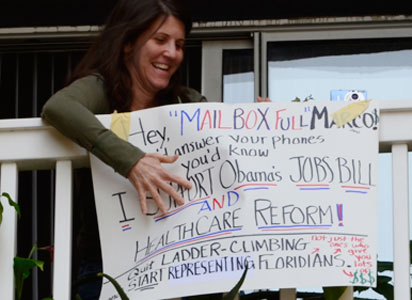 Hey, "MAILBOX FULL" MARCO!
I'd answer your phones
you'd know
I SUPPORT Obama's JOBS BILL
AND
HEALTHCARE REFORM!
Quit LADDER-CLIMBING
START REPRESENTING FLORIDIANS.
not just the
ones who
give you
lots of
$$$